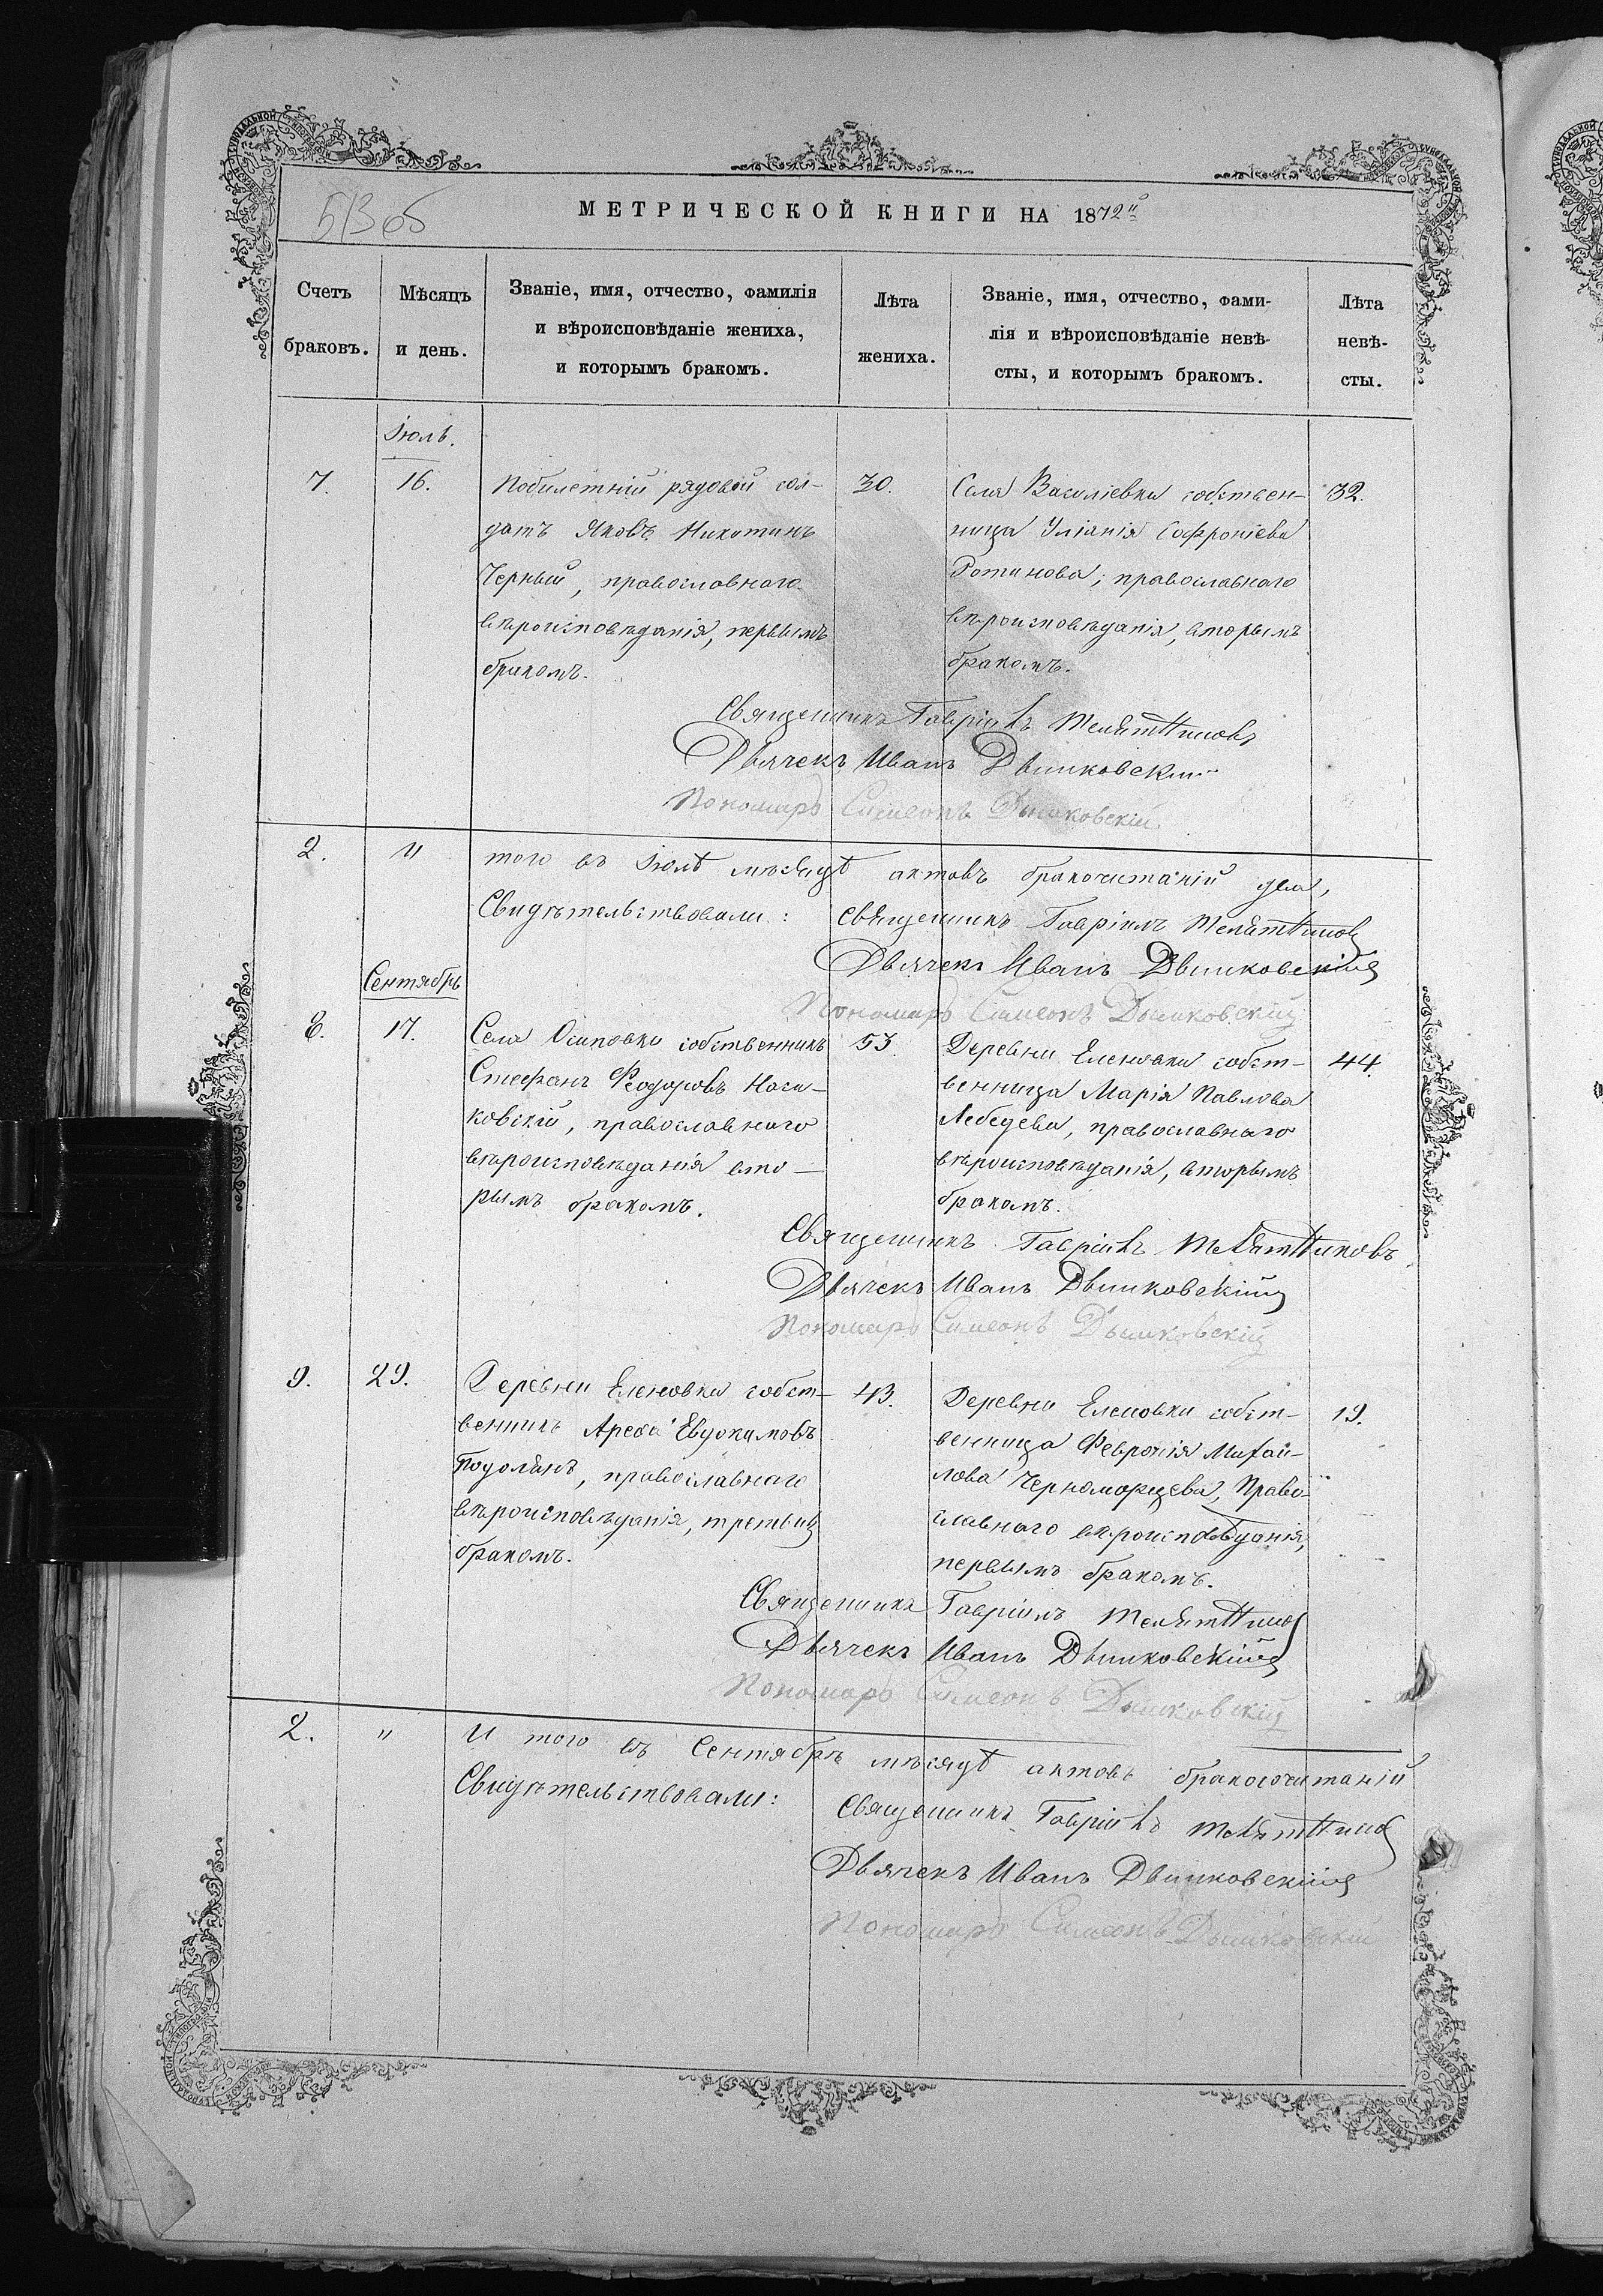 513 об
МЕТРИЧЕСКОЙ КНИГИ НА 1872й
Счетъ браковъ.
Мѣсяцъ и день.
Званіе, имя, отчество, фамилія
и вѣроисповѣданіе жениха,
и которымъ бракомъ.
Лѣта жениха.
Званіе, имя, отчество, фами-
лія и вѣроисповѣданіе невѣ-
сты, и которымъ бракомъ.
Лѣта невѣ-
сты.
Іюль.
7.
16.
Побилетній рядовой сол-
датъ Яковъ Никитинъ
Черный, православнаго
вѣроисповѣданія, первымъ
бракомъ.
30.
Села Василіевки собствен-
ница Уліянія Софроніева
Ротинова, православнаго
вѣроисповѣданія, вторымъ
бракомъ.
32.
Священникъ Гавріилъ
Дьячекъ Иванъ Дьшковскій
Пономарь Симеонъ Дышковскій
2.
И того въ Іюлѣ мѣсяцѣ актовъ бракочитаній два,
Свидѣтельствовали: Священникъ Гавріилъ
Дьячекъ Иванъ Дышковскій
Пономарь Симеонъ Дышковскій
Сентябрь
8.
17.
Села Осиповки собственникъ
Стефанъ Феодоровъ Носи-
ковскій, православнаго
вѣроисповѣданія вто-
рымъ бракомъ.
53.
Деревни Еленовки собст-
венница Марія Павлова
Лебедева, православнаго
вѣроисповѣданія, вторымъ
бракомъ.
44.
Священникъ Гавріилъ
Дьячекъ Иванъ Дышковскій
Пономарь Симеонъ Дышковскій
9.
29.
Деревни Еленовки собст-
венникъ Арефій Евдокимовъ
Подолянъ, православнаго
вѣроисповѣданія, третьимъ
бракомъ.
43.
Деревни Еленовки собст-
венница Февронія Михай-
лова Черноморцева, право-
славнаго вѣроисповѣданія,
первымъ бракомъ.
19.
Священникъ Гавріилъ
Дьячекъ Иванъ Дышковскій
Пономарь Симеонъ Дышковскій
2. " И того въ Сентябрѣ мѣсяцѣ актовъ бракосочитаній
Свидѣтельствовали: Священникъ Гавріилъ
Дьячекъ Иванъ Дышковскій
Пономарь Симеонъ Дышковскій